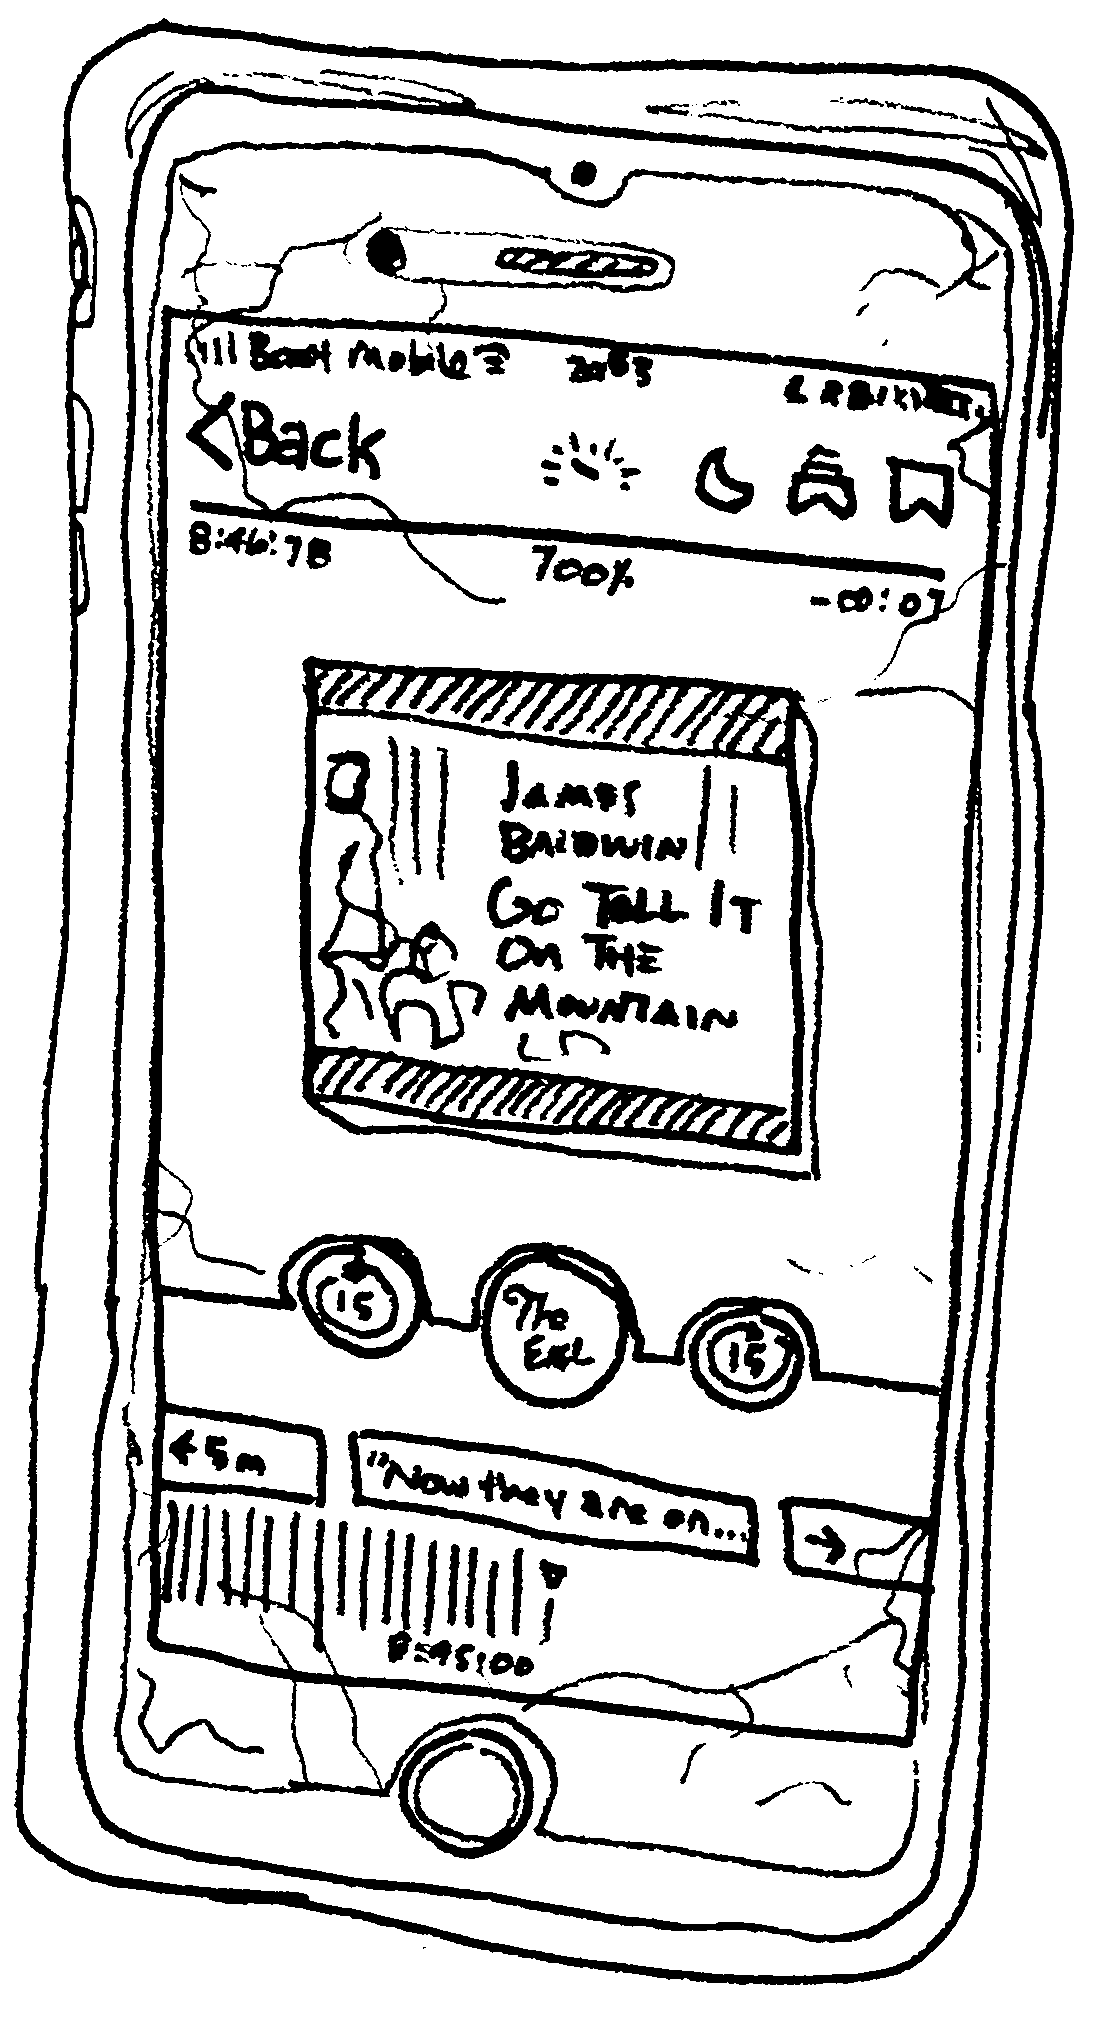 Boost Mobile
Back
8:46:78
700%
-00:07
JAMES
BALDWIN
GO TELL IT
ON THE
MOUNTAIN
15
The
End
15
5m
"Now they are on...
8:45:00